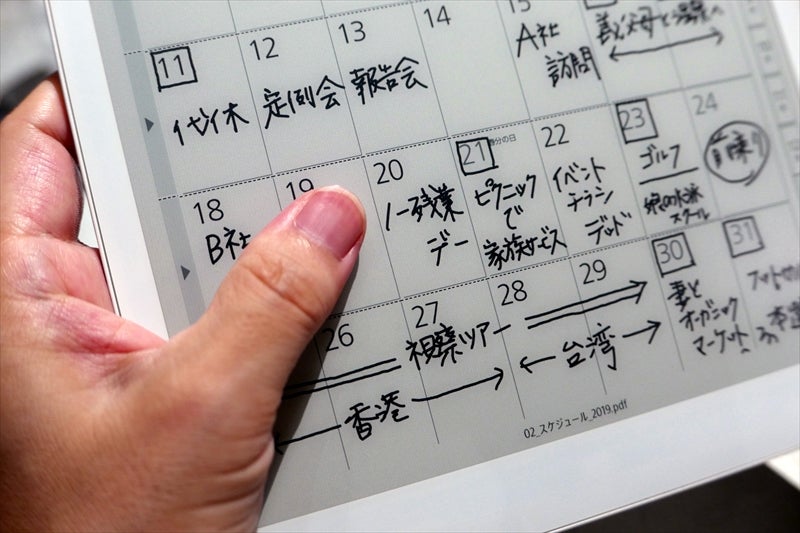 11 12 13 14 15
代休
定例会
報告会
A社
訪問
義父母と温泉へ
18 19 20 21 22 23 24
B社
ノー残業
デー
ピクニック
で
家族サービス
イベント
チラシ
デッド
ゴルフ
娘の水泳
スクール
前乗り
26 27 28 29 30 31
視察ツアー
香港
台湾
妻と
オーガニック
マーケット
02_スケジュール_2019.pdf